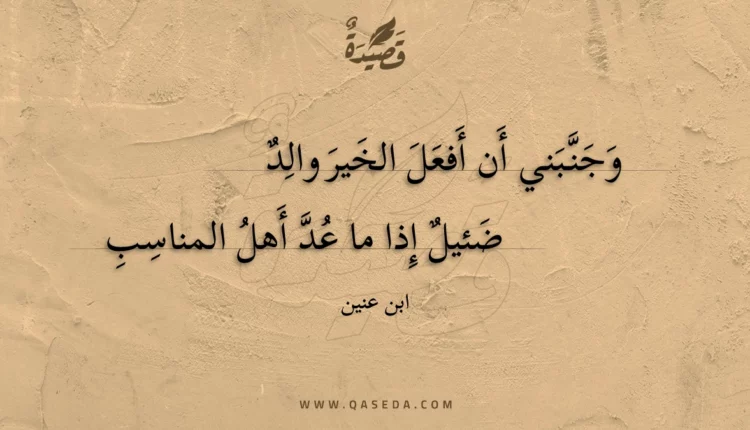 قَصِيْدَةٌ
وَجَنَّبَني أَن أَفعَلَ الخَيرَ والِدٌ
ضَئيلٌ إِذا ما عُدَّ أَهلُ المناسِبِ
ابن عنين
WWW.QASEDA.COM